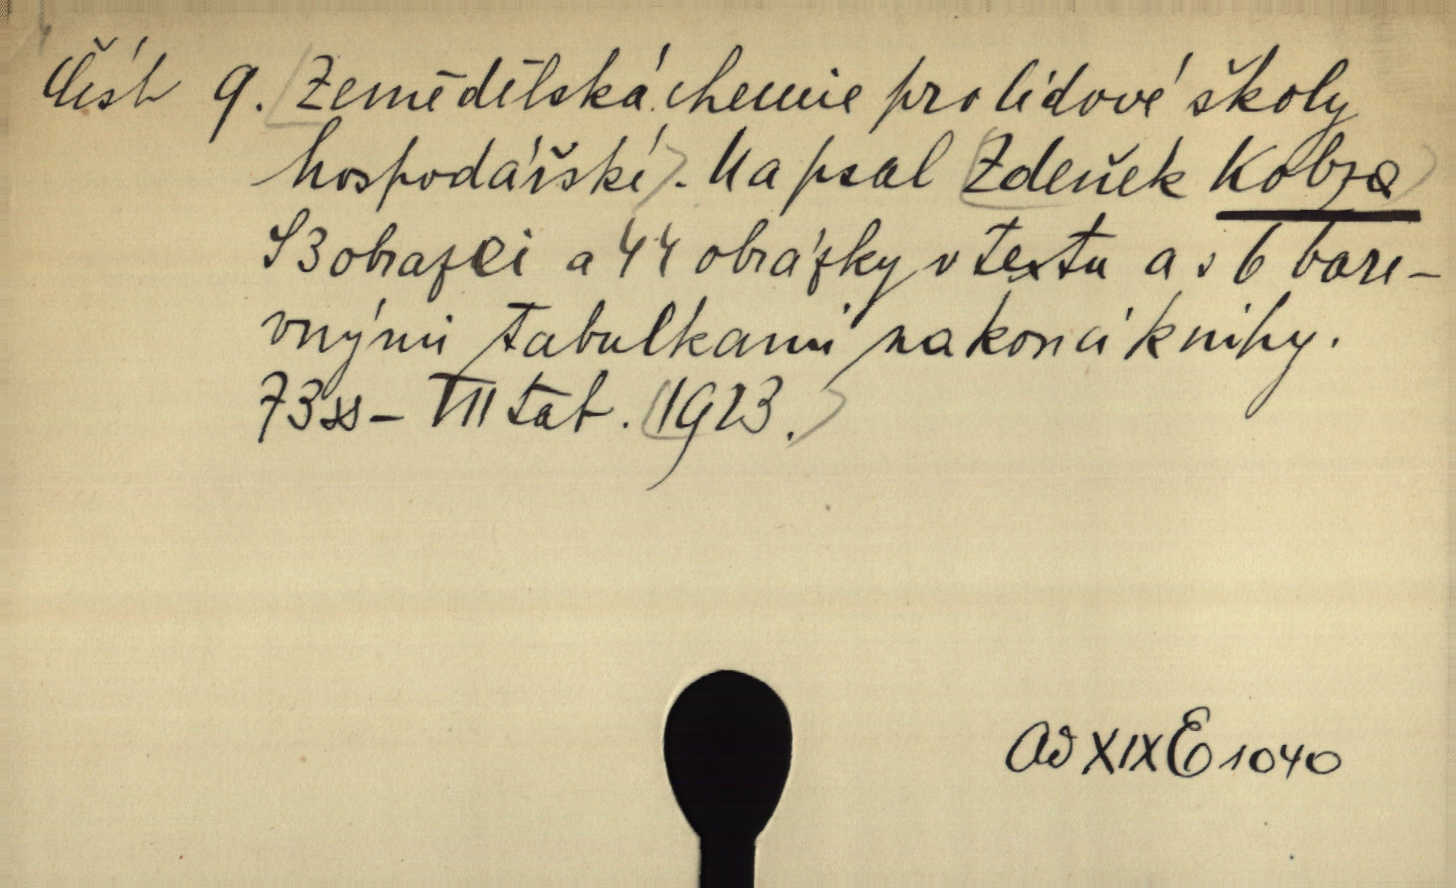 Část 9. Zemědělská chemie pro lidové školy
hospodářské. Napsal Zdeněk Kobza
S 3 obrazci a 44 obrázky v textu a s 6 bare-
vnými tabulkami na konci knihy.
73 ss - VII tab. 1923.
Ad XIX E 1040